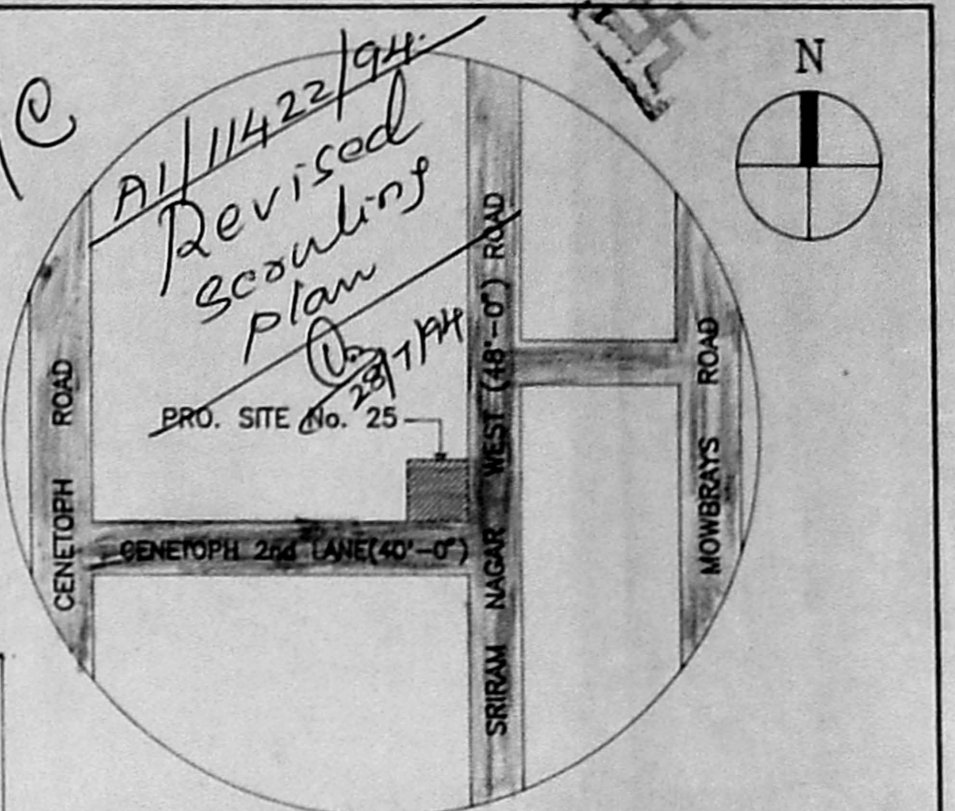 N
A1/11422/94.
Revised
scouling
plan
28/7/94
PRO. SITE No. 25
CENETOPH ROAD
CENETOPH 2nd LANE(40'-0")
SRIRAM NAGAR WEST (48'-0") ROAD
MOWBRAYS ROAD